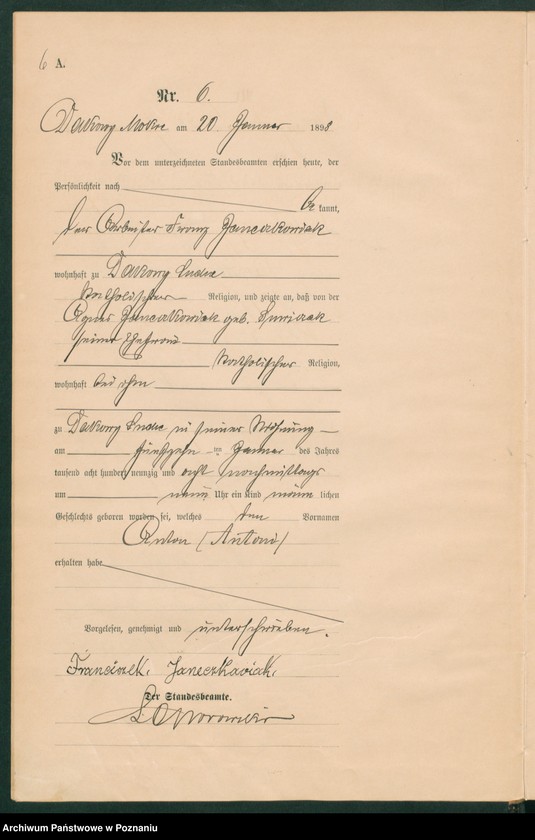 6 A.
Nr. 6.
Dakowy Mokre am 20 Januar 1898
Vor dem unterzeichneten Standesbeamten erschien heute, der
Persönlichkeit nach
be kannt,
der Arbeiter Franz Janeczkowiak
wohnhaft zu Dakowy suche
katholischer Religion, und zeigte an, daß von der
Agnes Janeczkowiak geb.
seiner Ehefrau
katholischer Religion,
wohnhaft bei ihm
zu Dakowy suche, in seiner Wohnung
am fünfzehn ten Januar des Jahres
tausend acht hundert neunzig und acht nachmittags
um neun Uhr ein Kind männ lichen
Geschlechts geboren worden sei, welches den Vornamen
Anton (Antoni)
erhalten habe
Vorgelesen, genehmigt und unterschrieben.
Franciszek Janeczkowiak
Der Standesbeamte.
Archiwum Państwowe w Poznaniu